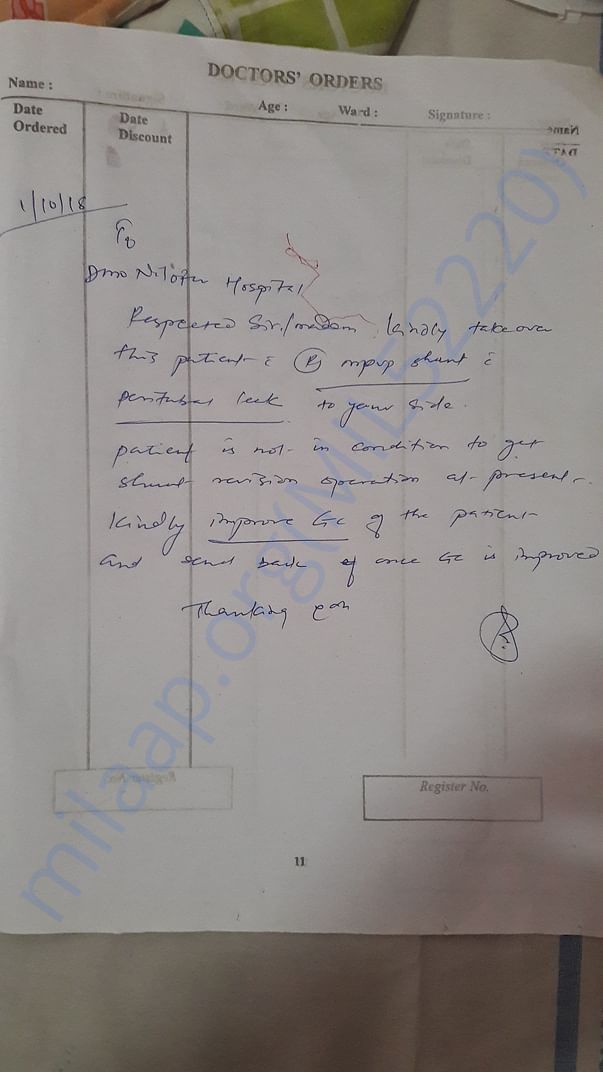 DOCTORS' ORDERS
Name :
Age :
Ward :
Signature :
Date Ordered
Date Discount
1/10/18
To
Dmo Nilofer Hospital
Respected Sir/madam kindly take over
this patient c̄ (R) mpvp shunt c̄
leak to your side.
patient is not in condition to get
shunt revision operation at present.
kindly improve Gc of the patient
and send back once Gc is improved
Thanking you
Register No.
Register No.
11
milaap.org(MIL52220)